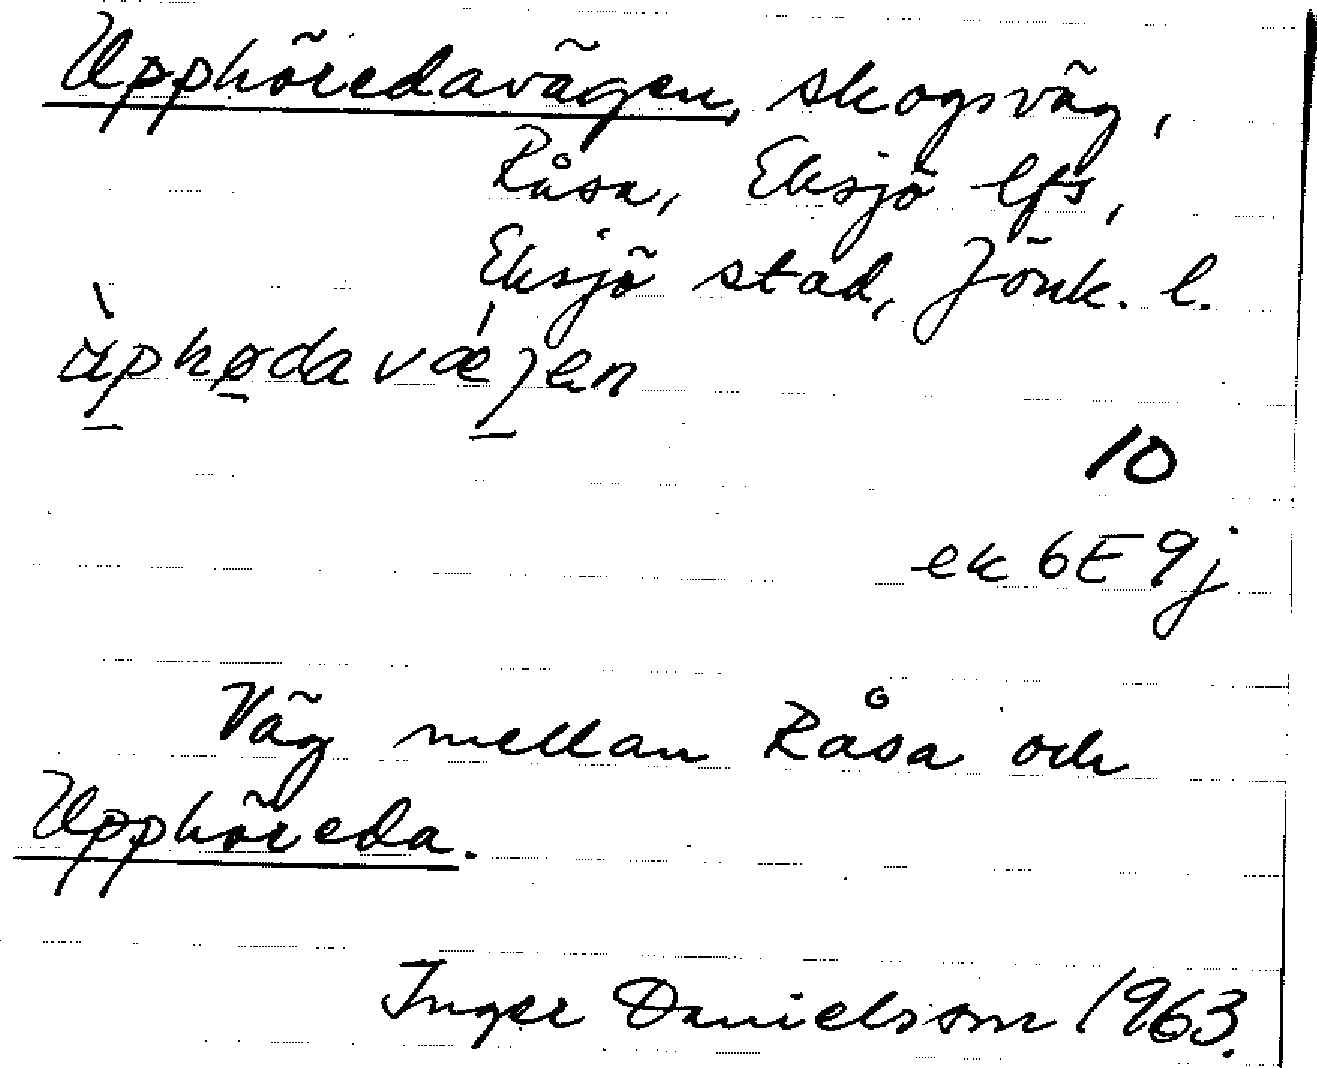 Upphöredavägen, skogsväg,
Råsa, Eksjö lfs,
Eksjö stad, Jönk. l.
10
ek 6E9j
Väg mellan Råsa och
Upphöreda.
Inger Danielsson 1963.